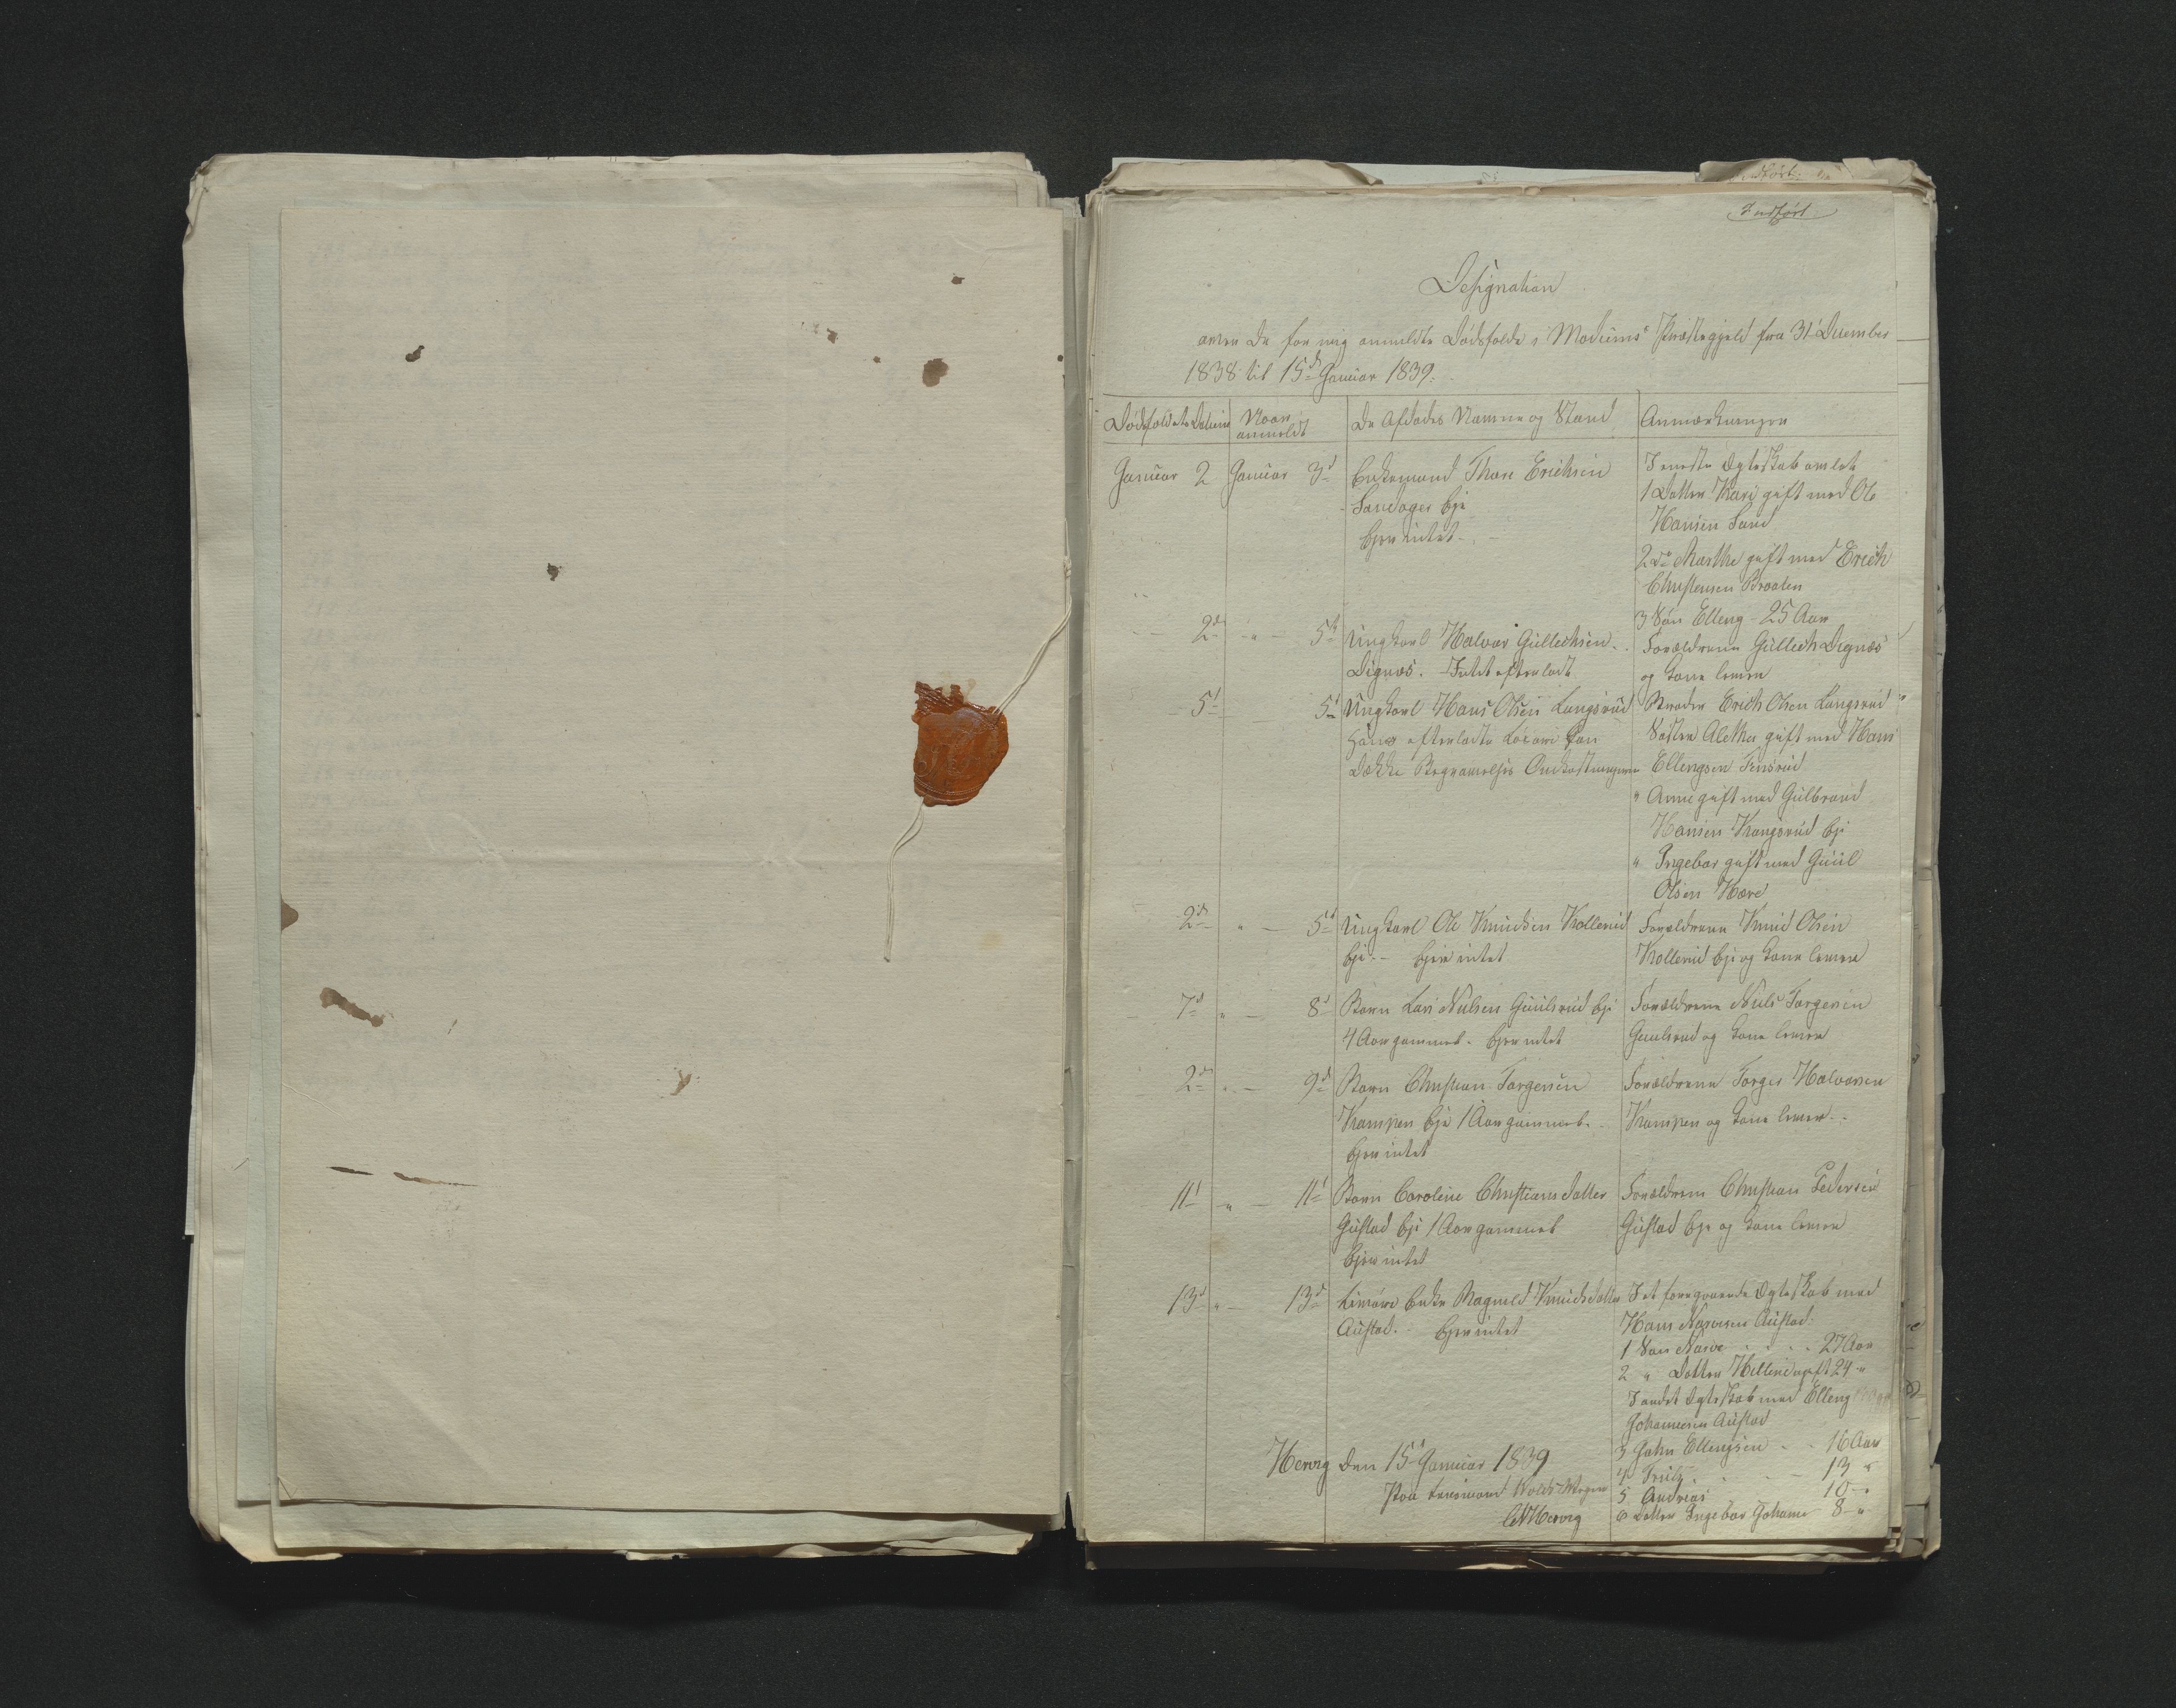 Indført
Designation
over de for mig anmeldte Dødsfalde i Modums Præstegjeld fra 31 December
1838 til 15d Januar 1839.
Dødsfaldets Datum
Naar anmeldt
De Afdødes Navne og Stand
Anmærkninger
Januar 2 Januar 3d Enkemand Thore Erichsen
Sandager Eje
Ejer intet
I eneste Egteskab avlet
1 Datter Kari gift med Ole
Hansen Sand
2 do Marthe gift med Erich
Christensen Braaten
3 Søn Elleng 25 Aar
2d " 5te Ungkarl Halvor Gullechsen
Dignæs. Intet efterladt
Forældrene Gullech Dignæs
og Kone lever
5t 5t Ungkarl Hans Olsen Langsrud
Hans efterladte kan
dække Begravelses Omkostningerne
Broder Erich Olsen Langsrud
Søster Alethe gift med Hans
Ellengsen
" Anne gift med Gulbrand
Hansen Kongsrud Eje
" Ingebor gift med Guul
Olsen Hære
2d " 5t Ungkarl Ole Knudsen Kollerud
Eje. Ejer intet
Forældrene Knud Olsen
Kollerud Eje og Kone lever
7d " 8d Barn Lars Nilsen Guulsrud Eje
4 Aar gammel. Ejer intet
Forældrene Niels Torgersen
Guulsrud og Kone lever
2d " 9d Barn Christian Torgersen
Kampen Eje 1 Aar gammel.
Ejer intet
Forældrene Torger Halvorsen
Kampen og Kone lever.
11t " 11t Barn Caroline Christiansdatter
Gustad Eje 1 Aar gammel
Ejer intet
Forældrene Christian Pedersen
Gustad Eje og Kone lever
13d " 13d Enke Ragnild Knudsdatter
Austad. Ejer intet
I et foregaaende Egteskab med
Hans Narvesen Austad:
1 Søn Narve 27 Aar
2 " Datter ugift 24 "
I andet Egteskab med Elleng
Johannesen Austad
3 John Ellengsen 16 Aar
4 13 "
5 Andreas 10 "
6 Datter Ingebor Johanne 8 "
Hervig den 15d Januar 1839
Paa Lensmand Vegne
Hervig